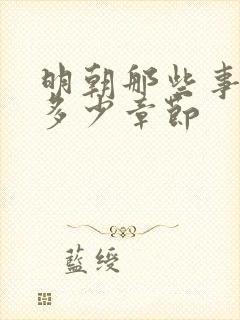 明朝那些事
多少章節
藍綬